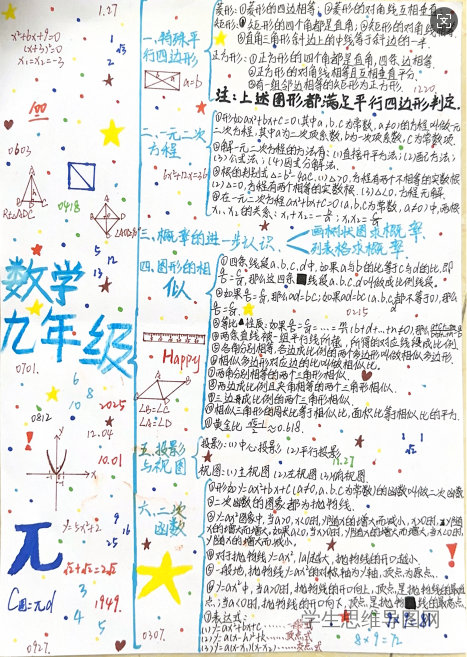 1.27
x²+6x+9=0
(x+3)²=0
x₁=x₂=-3
1
√5
2
100
0603
Rt△ADC
0418
5
12
13
数学
九年级
0701.
6
8
10
2025
0812
12.04
10.01
兀
y=5x²+2
9
16
25
√2+√2=2√2
C圆=πd
3
4
5
1949.
0927.
0307.
一、特殊平
行四边形
a=b
菱形:①菱形的四边相等;②菱形的对角线互相垂直
矩形:①矩形的四个角都是直角;②矩形的对角线相等
③直角三角形斜边上的中线等于斜边的一半.
正方形:①正方形的四个角都是直角,四条边相等
②正方形的对角线相等且互相垂直平分.
③有一组邻边相等的矩形为正方形.
1220
注:上述图形都满足平行四边形判定.
二、一元二次
方程
6x²+12x=36
①形如ax²+bx+c=0,其中a,b,c为常数,a≠0的方程叫做一元
二次方程,其中a为二次项系数,b为一次项系数,c为常数项.
②解一元二次方程的方法有:(1)直接开平方法;(2)配方法;
(3)公式法;(4)因式分解法.
③根的判别式△=b²-4ac.(1)△>0,方程有两个不相等的实数根
(2)△=0,方程有两个相等的实数根.(3)△<0,方程无解.
④在一元二次方程ax²+bx+c=0中,a,b,c为常数,a≠0中,两根
x₁、x₂的关系:x₁+x₂=-b/a;x₁x₂=c/a
三、概率的进一步认识
画树状图求概率
列表格求概率
四、图形的相
似
Happy
∠B=∠C
∠A=∠D
①四条线段a.b.c.d中,如果a与b的比等于c与d的比,即
a/b=c/d,那么这四条线段a.b.c.d叫做成比例线段.
②如果a/b=c/d,那么ad=bc;如果ad=bc(a.b.c.d都不等于0),那么
a/b=c/d
0215
③等比性质:如果a/b=c/d=……=m/n(b+d+…+n≠0),那么
④两条直线被一组平行线所截,所得的对应线段成比例.
⑤各角分别相等,各边成比例的两个多边形叫做相似多边形.
⑥相似多边形对应边的比叫做相似比.
⑦两角分别相等的两个三角形相似.
⑧两边成比例且夹角相等的两个三角形相似.
⑨三边成比例的两个三角形相似.
⑩相似三角形的周长比等于相似比,面积比等于相似比的平方.
⑪黄金比≈0.618.
五、投影
与视图
投影:(1)中心投影(2)平行投影
11.27
视图:(1)主视图(2)左视图(3)俯视图
六、二次
函数
①形如y=ax²+bx+c(a≠0,a、b、c为常数)的函数叫做二次函数
②二次函数的图象都为抛物线.
③y=ax²图象中,当a>0,x<0时,y随x的增大而减小,x>0时,y随x
的增大而增大,如果a<0,当x>0时,y随x的增大而减小,当x<0时,
y随x的增大而增大.
④对于抛物线y=ax²,|a|越大,抛物线的开口越小.
⑤一般地,抛物线y=ax²的对称轴为y轴,顶点为原点.
⑥y=ax²中,当a>0时,抛物线的开口向上,顶点是抛物线的最低
点;当a<0时,抛物线的开口向下,顶点是抛物线的最高点.
⑦表达式:
(1)y=ax²+bx+c 一般式
(2)y=a(x-h)²+k 顶点式
(3)y=a(x-x₁)(x-x₂) 交点式
9×9=81
8×9=72
学生思维导图网